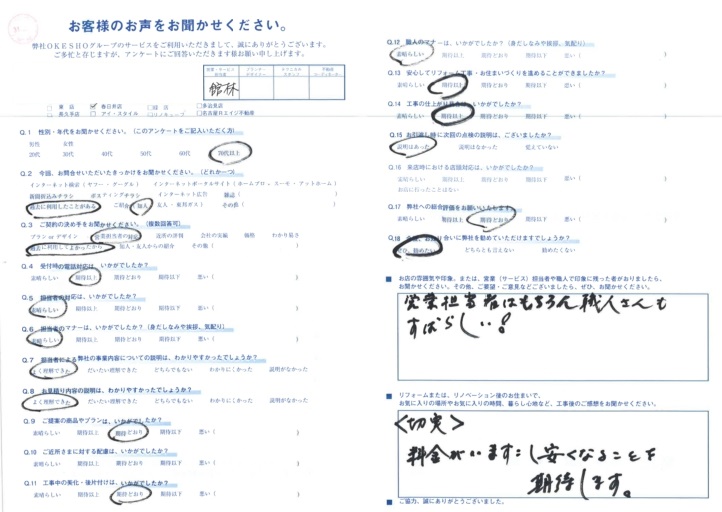 お客様のお声をお聞かせください。
弊社OKESHOグループのサービスをご利用いただきまして、誠にありがとうございます。
ご多忙と存じますが、アンケートにご回答いただきます様お願い申し上げます。
館林
東店 ✓ 春日井店 多治見店
長久手店 アイ・スタイル リノキューブ 名古屋RエイジF動産
Q.1 性別・年代をお聞かせください。(このアンケートをご記入いただく方)
男性 女性
20代 30代 40代 50代 60代 70代以上
Q.2 今回、お問合せいただいたきっかけをお聞かせください。(どれか一つ)
インターネット検索(ヤフー・グーグル) インターネットポータルサイト(ホームプロ、スーモ・アットホーム)
新聞折込みチラシ ポスティングチラシ インターネット広告 雑誌( )
過去に利用したことがある ご紹介(個人 友人・東邦ガス) その他( )
Q.3 ご契約の決め手をお聞かせください。(複数回答可)
プラン or デザイン 営業担当者の対応 会社の実績 価格 わかり易さ
過去に利用してよかったから 知人・友人からの紹介 その他( )
Q.4 受付時の電話対応は、いかがでしたか?
素晴らしい 期待以上 期待どおり 期待以下 悪い( )
Q.5 担当者の対応は、いかがでしたか?
素晴らしい 期待以上 期待どおり 期待以下 悪い( )
Q.6 担当者のマナーは、いかがでしたか?(身だしなみや挨拶、気配り)
素晴らしい 期待以上 期待どおり 期待以下 悪い( )
Q.7 担当者による弊社の事業内容についての説明は、わかりやすかったでしょうか?
よく理解できた だいたい理解できた どちらでもない わかりにくかった 説明がなかった
Q.8 お見積り内容の説明は、わかりやすかったでしょうか?
よく理解できた だいたい理解できた どちらでもない わかりにくかった 説明がなかった
Q.9 ご提案の商品やプランは、いかがでしたか?
素晴らしい 期待以上 期待どおり 期待以下 悪い( )
Q.10 ご近所さまに対する配慮は、いかがでしたか?
素晴らしい 期待以上 期待どおり 期待以下 悪い( )
Q.11 工事中の美化・後片付けは、いかがでしたか?
素晴らしい 期待以上 期待どおり 期待以下 悪い( )
Q.12 職人のマナーは、いかがでしたか?(身だしなみや挨拶、気配り)
素晴らしい 期待以上 期待どおり 期待以下 悪い( )
Q.13 安心してリフォーム工事・お住まいづくりを進めることができましたか?
素晴らしい 期待以上 期待どおり 期待以下 悪い( )
Q.14 工事の仕上がり具合は、いかがでしたか?
素晴らしい 期待以上 期待どおり 期待以下 悪い( )
Q.15 お引渡し時に次回の点検の説明は、ございましたか?
説明はあった 説明はなかった 覚えていない
Q.16 来店時における店頭対応は、いかがでしたか?
素晴らしい 期待以上 期待どおり 期待以下 悪い( )
お店に行ったことはない
Q.17 弊社への総合評価をお願いいたします。
素晴らしい 期待以上 期待どおり 期待以下 悪い( )
Q.18 今後、お知り合いに弊社を勧めていただけますでしょうか?
ぜひ、勧めたい どちらとも言えない 勧めたくない
■ お店の雰囲気や印象、または、営業(サービス)担当者や職人で印象に残った者がおりましたら、
お聞かせください。その他、ご要望・ご意見などございましたら、ぜひ、お聞かせください。
営業担当者はもちろん職人さんも
すばらしい!
■ リフォームまたは、リノベーション後のお住まいで、
お気に入りの場所やお気に入りの時間、暮らし心地など、工事後のご感想をお聞かせください。
<切実>
期待します。
■ ご協力、誠にありがとうございました。